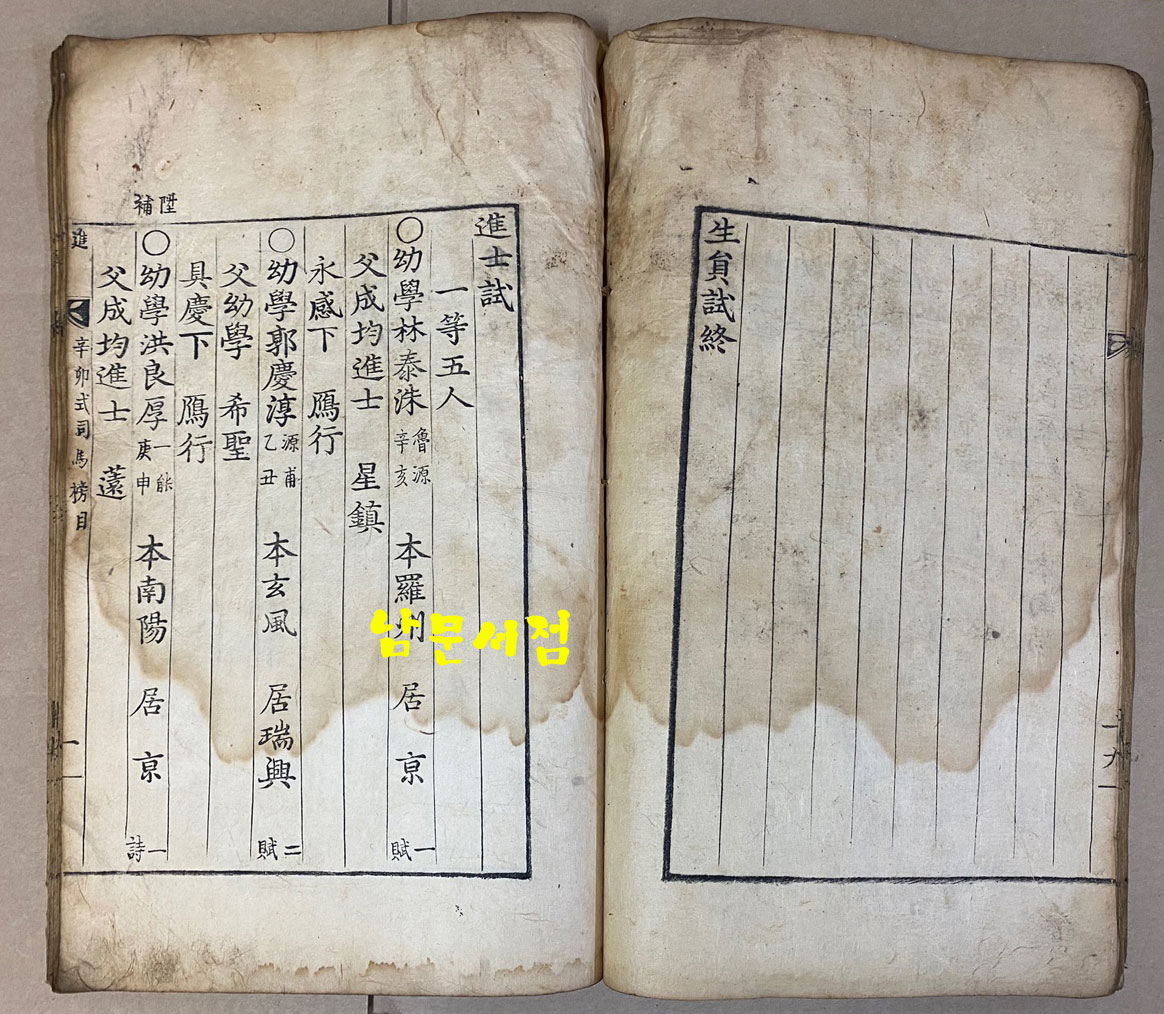 生員試終
十九
進士試
一等五人
○幼學林泰洙 魯源 辛亥 本羅州 居京 一賦
父成均進士 星鎮
永感下 鴈行
○幼學郭慶淳 源甫 乙丑 本玄風 居瑞興 二賦
父幼學 希聖
具慶下 鴈行
陞補
○幼學洪良厚 一能 庚申 本南陽 居京 一詩
父成均進士 薳
進 辛卯式司馬榜目 一
남문서점